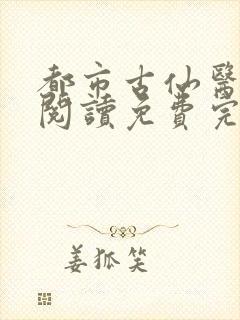 都市古仙醫
閱讀免費完
姜狐笑